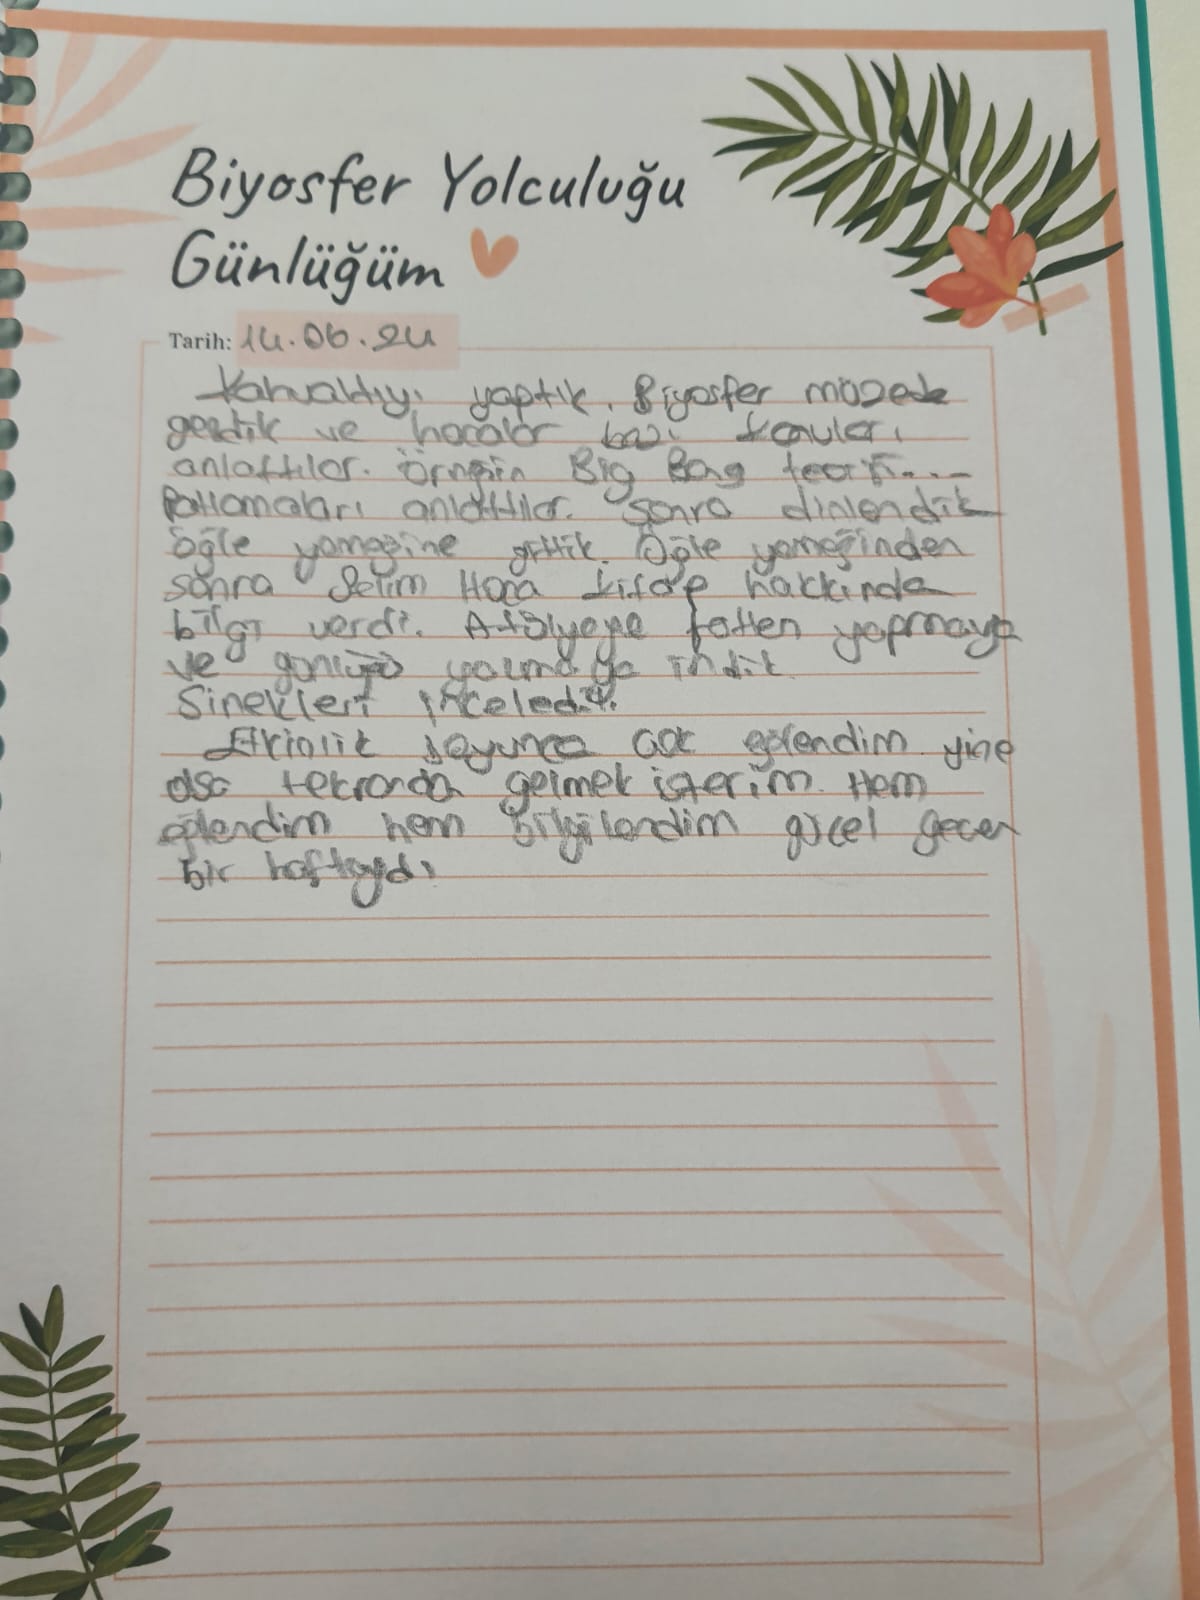 Biyosfer Yolculuğu
Günlüğüm
Tarih: 14.06.24
Kahvaltıyı yaptık. Biyosfer müzede
gezdik ve hocalar bazı konuları
anlattılar. Örneğin Big Bang teori...
Patlamaları anlattılar. Sonra dinlendik
öğle yemeğine gittik. Öğle yemeğinden
sonra Selim Hoca kitap hakkında
bilgi verdi. Atölyeye fatten yapmaya
ve günlüğü yazmaya indik
Sinekleri inceledik.
Etkinlik boyunca çok eğlendim yine
olsa tekrarda gelmek isterim. Hem
eğlendim hem bilgilendim güzel geçen
bir haftaydı